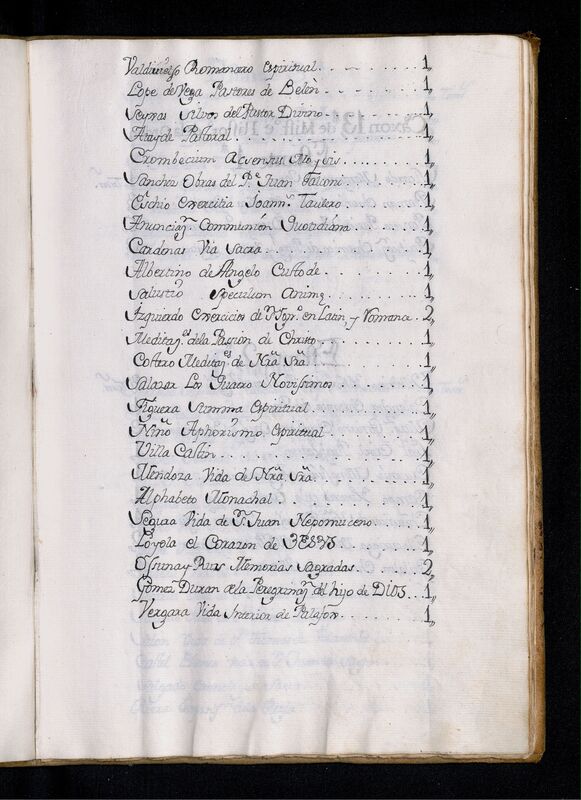 Valdivielso Romanzero Espiritual. 1,,
Lope de Vega Pastores de Belèn 1,,
Reyna Silvos del Pastor Divino 1,,
Atayde Pastoral 1,,
Crombecium Acsensus Moysis 1,,
Sanchez Obras del P.e Juan Falconi 1,,
Eschio exercitia Joann.s Taulero 1,,
Anunciaz.n Communión Quotidiana 1,,
Cardenas Via Sacra 1,,
Albertino de Angelo Custode 1,,
Salustio Speculum Animę 1,,
Izquierdo Exercicios de S. Ygn.o en Latin, y Romance. 2,,
Meditaz.es de la Passion de Christo 1,,
Cottero Meditaz.s de Nrã Srã 1,,
Salazar Los Quatro Novissimos 1,,
Figuera Summa Espiritual 1,,
Niño Aphorismo Espiritual 1,,
Villa Castin 1,,
Mendoza Vida de Nrã Srã 1,,
Alphabeto Monachal 1,,
Segura Vida de S. Juan Nepomuceno 1,,
Loyola el Corazon de JESVS 1,,
Ossuna y Rus Memorias Sagradas 2,,
Gomez Duran de la Peregrinaz.n del hijo de DIOS 1,,
Vergara Vida Interior de Palafox 1,,